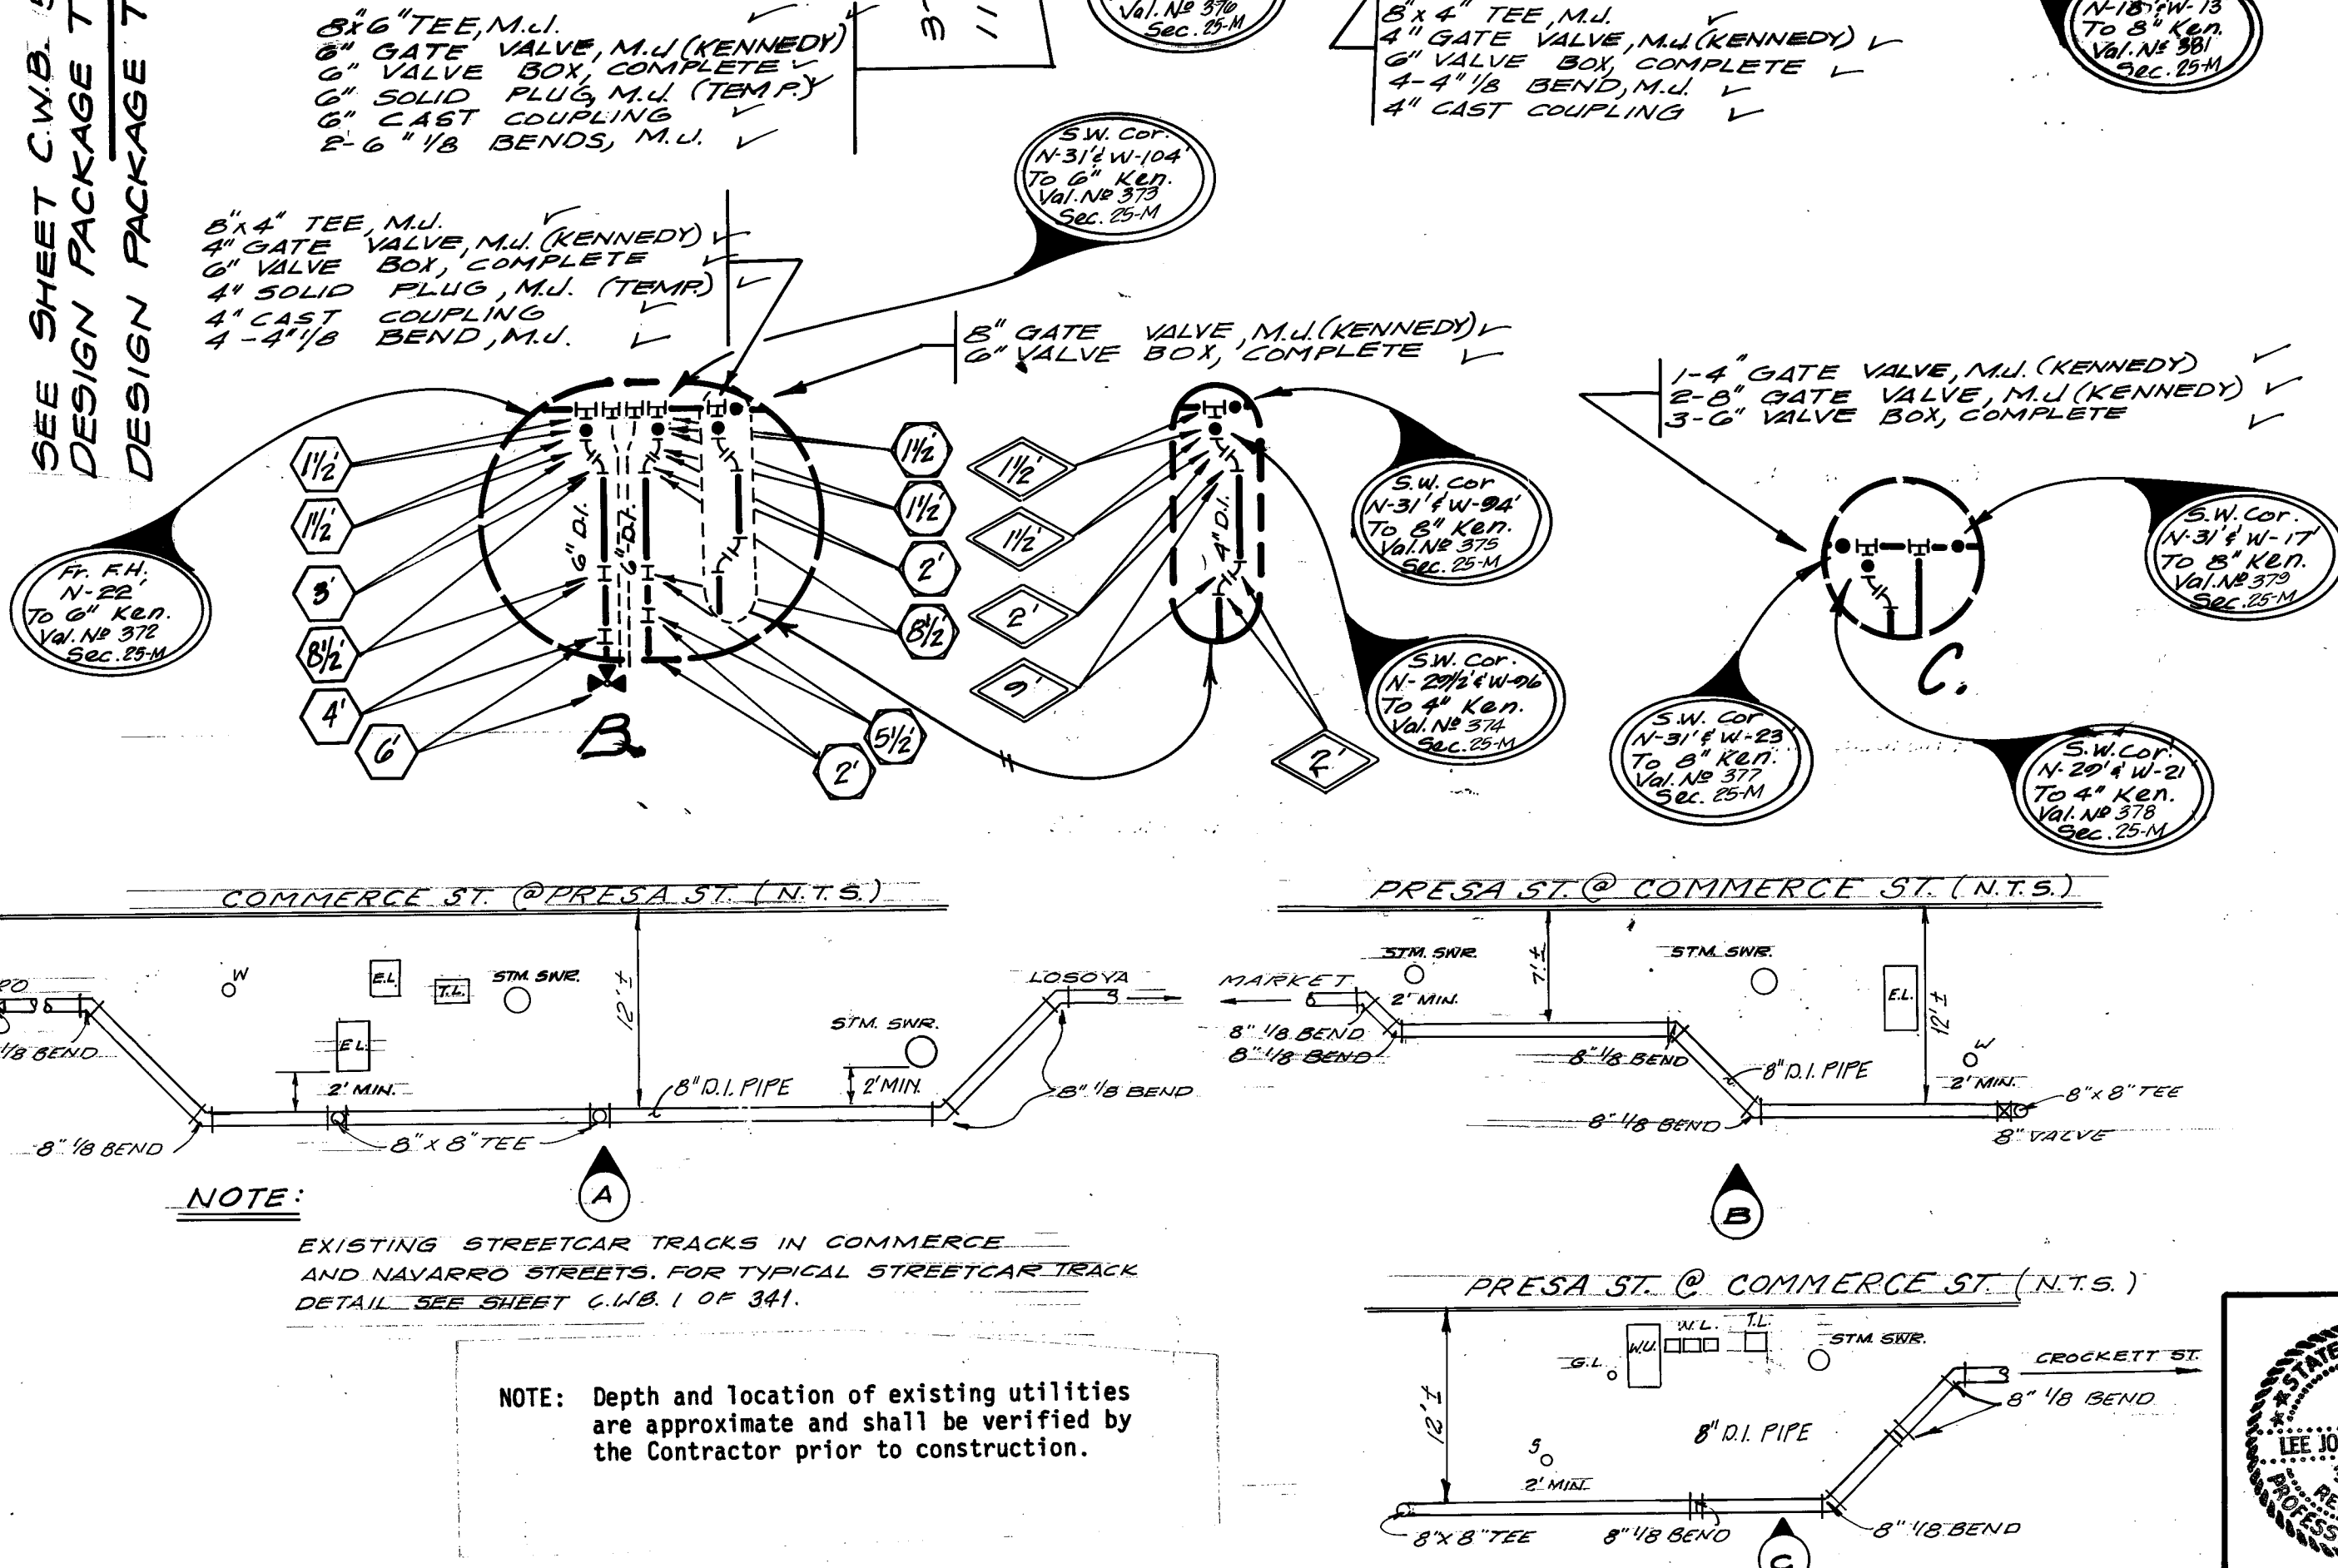 SEE SHEET C.W.B.
DESIGN PACKAGE
DESIGN PACKAGE
8"x6" TEE, M.J.
6" GATE VALVE, M.J. (KENNEDY)
6" VALVE BOX, COMPLETE
6" SOLID PLUG, M.J. (TEMP.)
6" CAST COUPLING
2-6" 1/8 BENDS, M.J.
Val. Nº 376
Sec. 25-M
8"x 4" TEE, M.J.
4" GATE VALVE, M.J. (KENNEDY)
6" VALVE BOX, COMPLETE
4-4" 1/8 BEND, M.J.
4" CAST COUPLING
N-18' & W-13
To 8" Ken.
Val. Nº 381
Sec. 25-M
S.W. Cor.
N-31' & W-104'
To 6" Ken.
Val. Nº 373
Sec. 25-M
8"x4" TEE, M.J.
4" GATE VALVE, M.J. (KENNEDY)
6" VALVE BOX, COMPLETE
4" SOLID PLUG, M.J. (TEMP.)
4" CAST COUPLING
4-4" 1/8 BEND, M.J.
8" GATE VALVE, M.J. (KENNEDY)
6" VALVE BOX, COMPLETE
1-4" GATE VALVE, M.J. (KENNEDY)
2-8" GATE VALVE, M.J (KENNEDY)
3-6" VALVE BOX, COMPLETE
Fr. F.H.
N-22'
To 6" Ken.
Val. Nº 372
Sec. 25-M
1½'
1½'
3'
8½'
4'
6'
6" D.I.
6" D.I.
B.
1½'
1½'
2'
8½'
5½'
2'
1½'
1½'
2'
9'
2'
4" D.I.
S.W. Cor
N-31' & W-94'
To 8" Ken.
Val. Nº 375
Sec. 25-M
S.W. Cor.
N-29½' & W-96
To 4" Ken.
Val. Nº 374
Sec. 25-M
S.W. Cor.
N-31' & W-17'
To 8" Ken.
Val. Nº 379
Sec. 25-M
C.
S.W. Cor
N-31' & W-23'
To 8" Ken.
Val. Nº 377
Sec. 25-M
S.W. Cor.
N-29' & W-21'
To 4" Ken.
Val. Nº 378
Sec. 25-M
COMMERCE ST. @ PRESA ST. (N.T.S.)
W
E.L.
T.L.
STM. SWR.
12' ±
LOSOYA
1/8 BEND
E.L.
2' MIN.
STM. SWR.
8" D.I. PIPE
2' MIN.
8" 1/8 BEND
8" 1/8 BEND
8" X 8" TEE
A
PRESA ST. @ COMMERCE ST. (N.T.S.)
MARKET
STM. SWR.
7' ±
STM. SWR.
E.L.
12' ±
2' MIN.
8" 1/8 BEND
8" 1/8 BEND
8" 1/8 BEND
8" D.I. PIPE
W
2' MIN.
8" x 8" TEE
8" 1/8 BEND
8" VALVE
B
NOTE:
EXISTING STREETCAR TRACKS IN COMMERCE
AND NAVARRO STREETS. FOR TYPICAL STREETCAR TRACK
DETAIL SEE SHEET C.W.B. 1 OF 341.
NOTE: Depth and location of existing utilities
are approximate and shall be verified by
the Contractor prior to construction.
PRESA ST. @ COMMERCE ST. (N.T.S.)
G.L.
W.U.
W.L.
T.L.
STM. SWR.
CROCKETT ST.
12' ±
8" 1/8 BEND
8" D.I. PIPE
S
2' MIN.
8" X 8" TEE
8" 1/8 BEND
8" 1/8 BEND
C
STATE
LEE JO